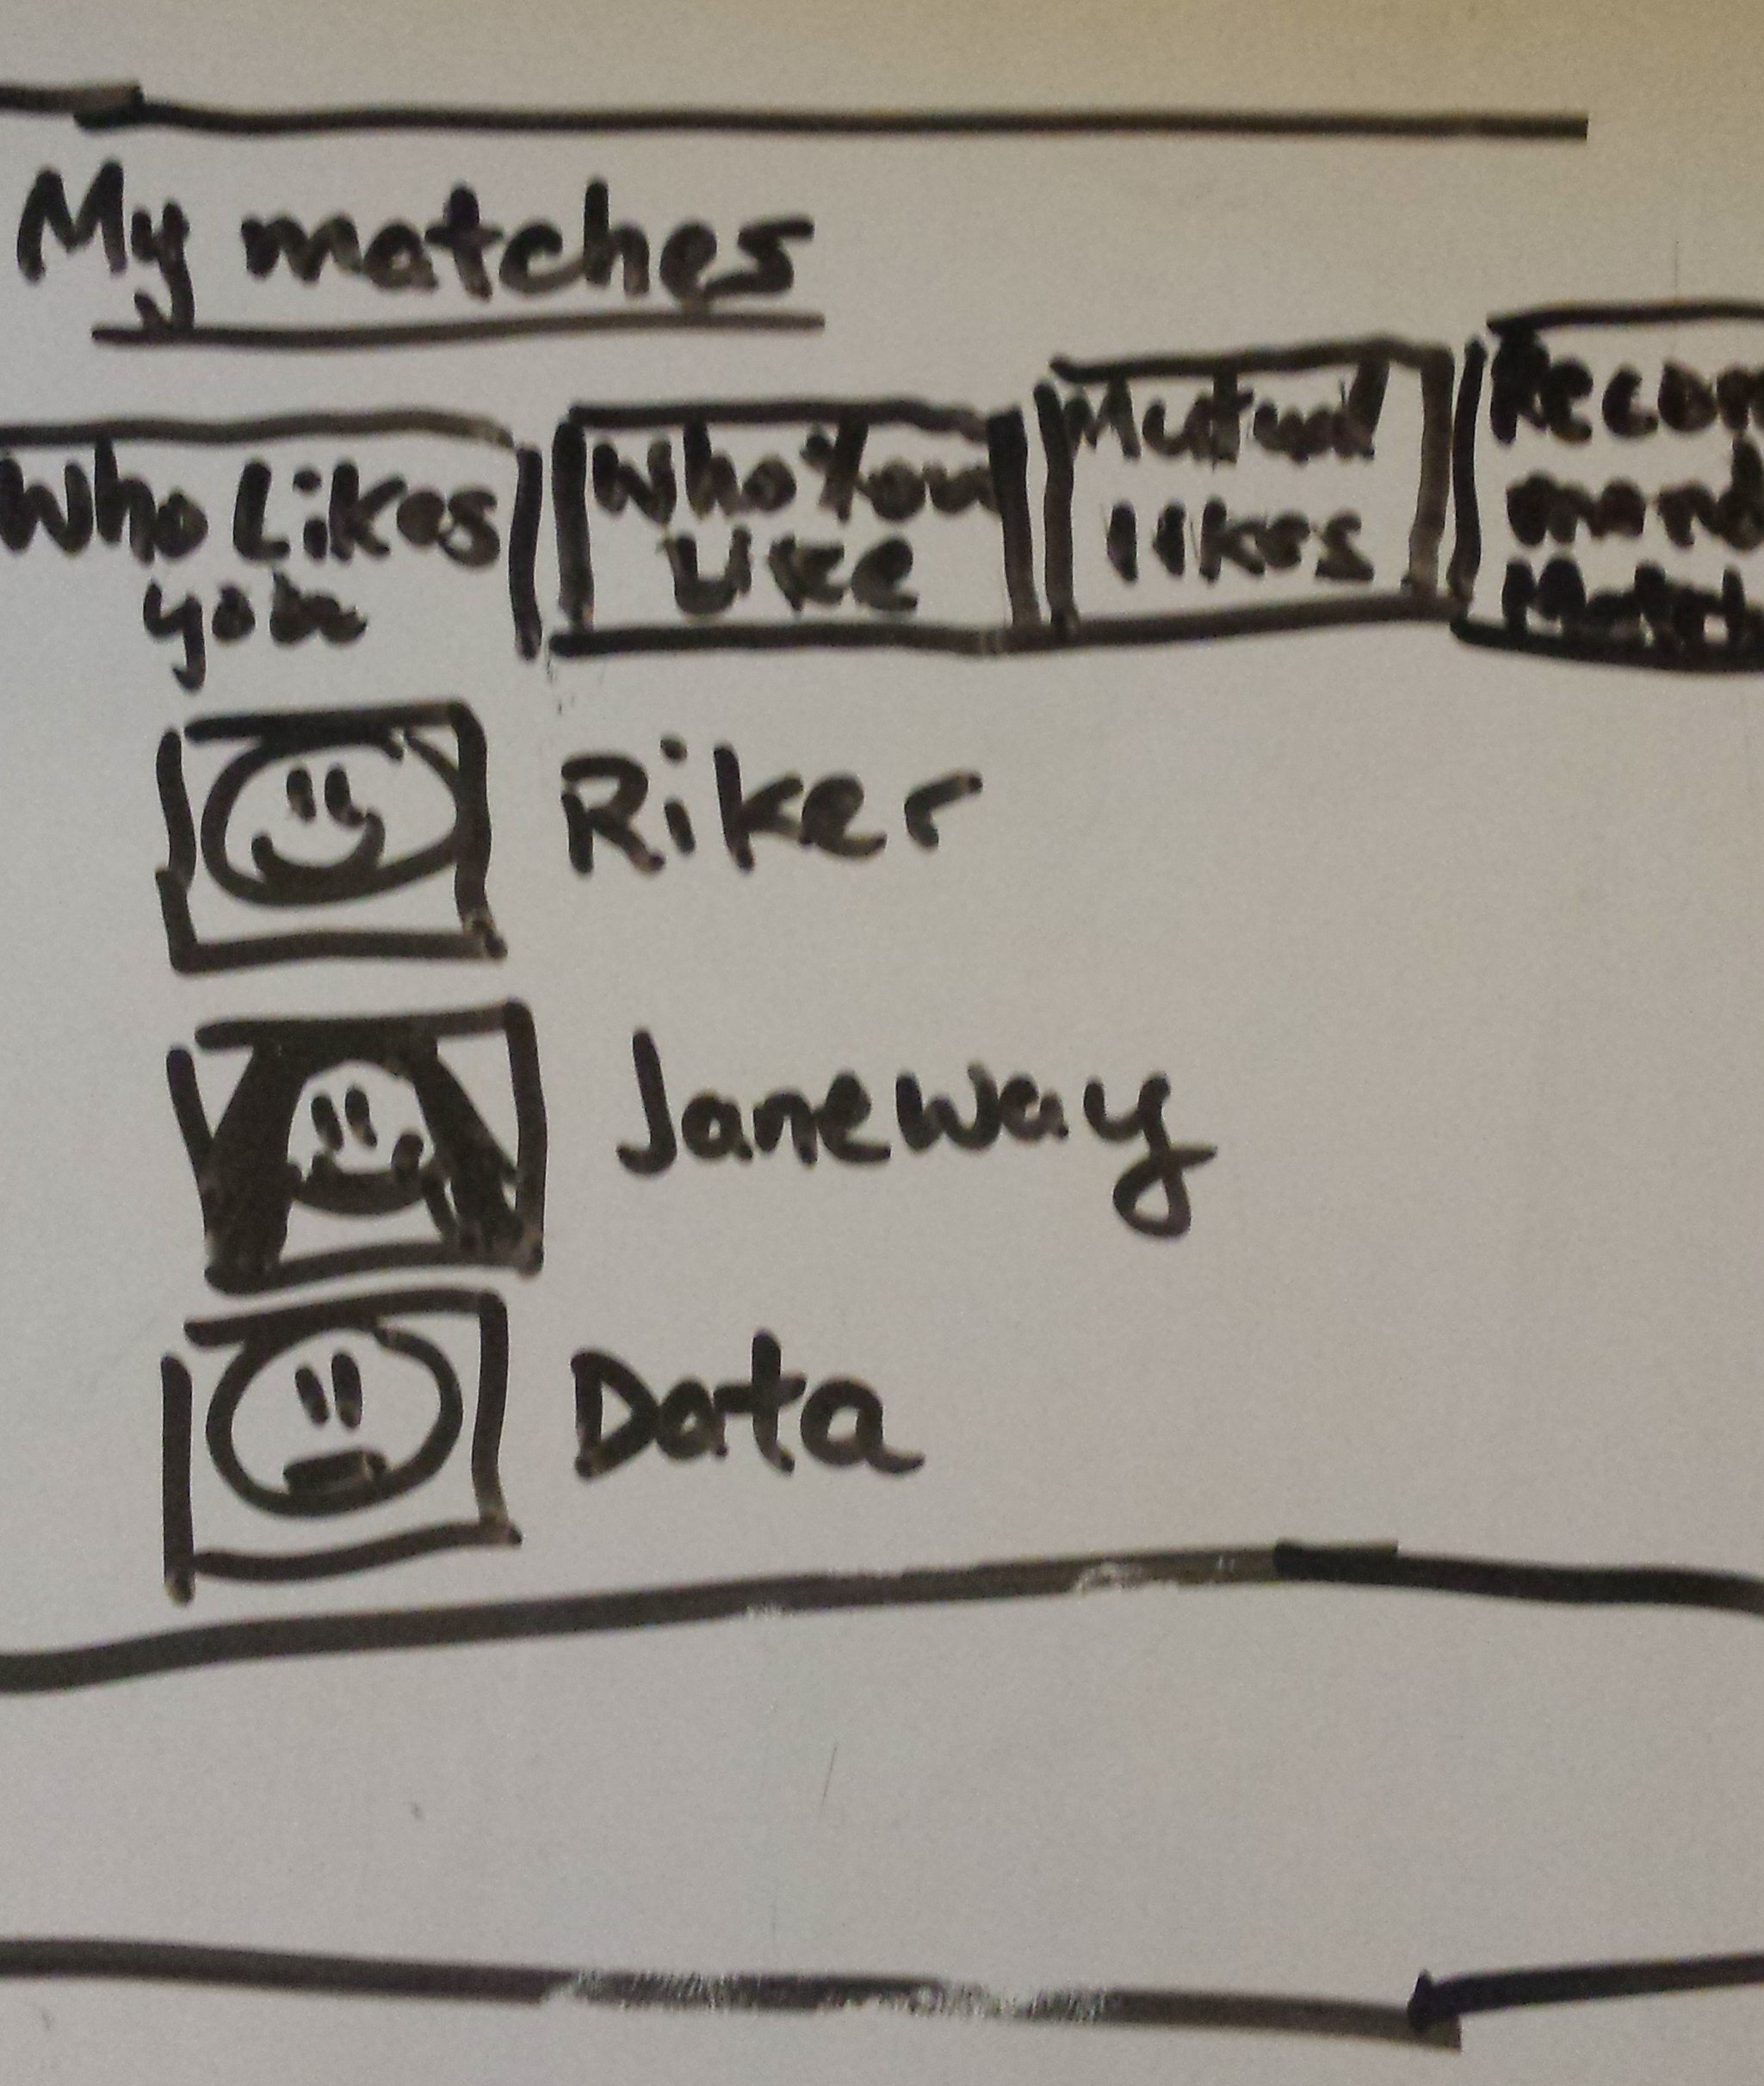 My matches
Who Likes
you
Who You
Like
Mutual
likes
Recom
mend
Match
Riker
Janeway
Data